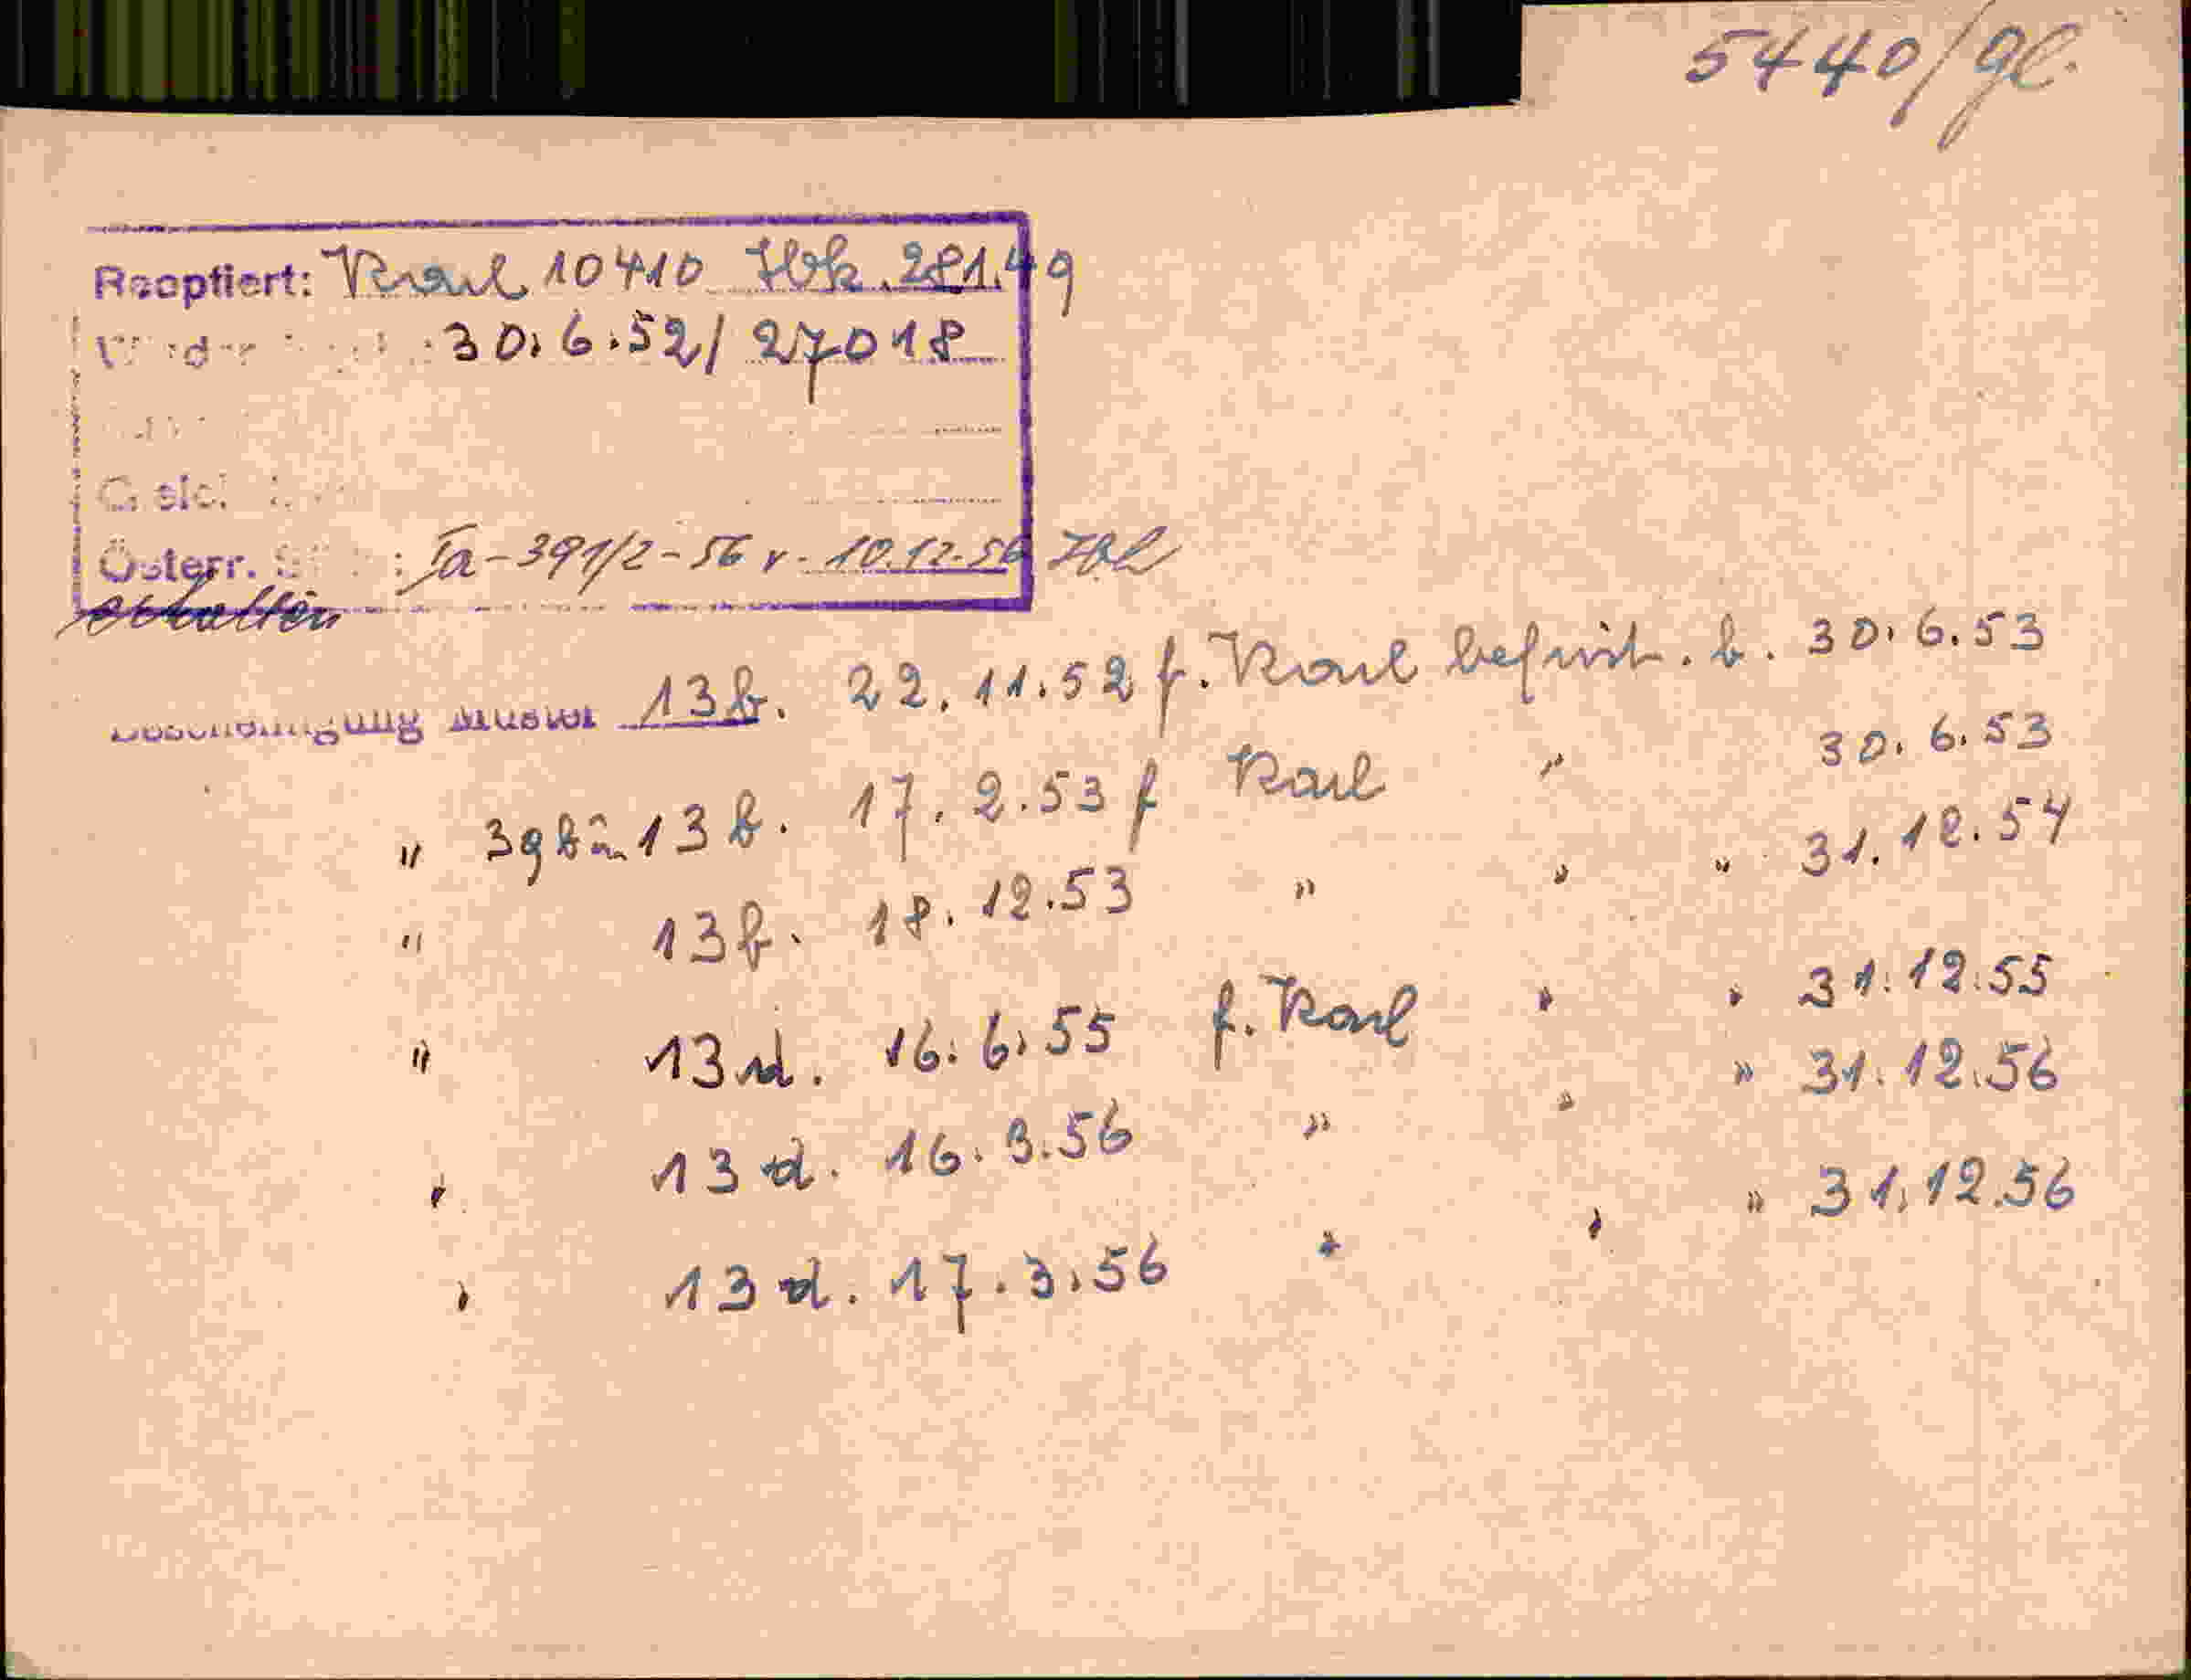 5440/gl.
Reoptiert: Karl 10410 Hbk. 281.49
30.6.52/ 27018
Österr. : Ia-391/2-56 v. 10.12.56
erhalten
Bescheinigung Muster 13b. 22.11.52 f. Karl befrist. b. 30.6.53
" 13b. 17.2.53 f Karl " 30.6.53
" 13b. 18.12.53 " " " 31.12.54
" 13d. 16.6.55 f. Karl " " 31.12.55
" 13d. 16.3.56 " " " 31.12.56
" 13d. 17.3.56 " " " 31.12.56